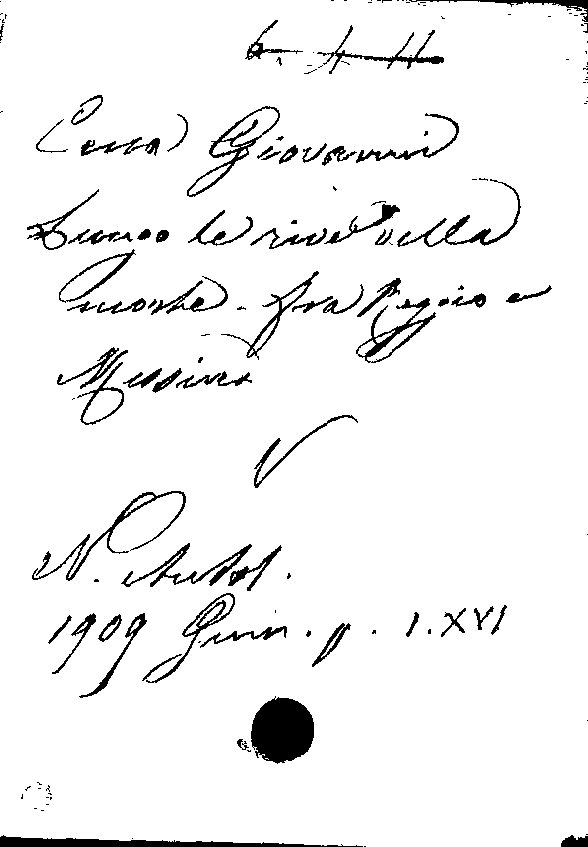 6. 4 11
Cena Giovanni
Lungo le rive della
morte. Fra Reggio e
Messina
V
N. Antol.
1909 Genn. p. I. XVI